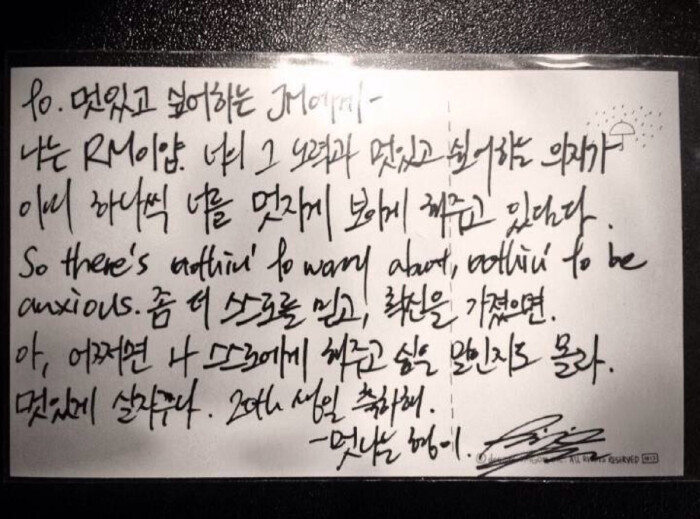 To. 멋있고 싶어하는 JM에게-
나는 RM이얌. 너의 그 노력과 멋있고 싶어하는 의지가
이미 하나씩 너를 멋지게 보이게 해주고 있담다.
So there's nothin' to worry about, nothin' to be
anxious. 좀 더 스스로를 믿고, 확신을 가졌으면.
아, 어쩌면 나 스스로에게 해주고 싶은 말인지도 몰라.
멋있게 살자꾸나. 20th 생일 축하해.
-멋나는 형이.
ALL RIGHTS RESERVED